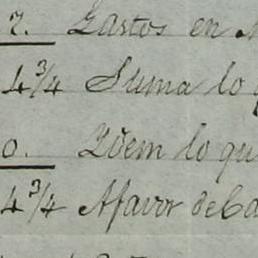 7. Gastos en
4 3/4 Suma lo
0. Ydem lo qu
4 3/4 Afavor de Ca